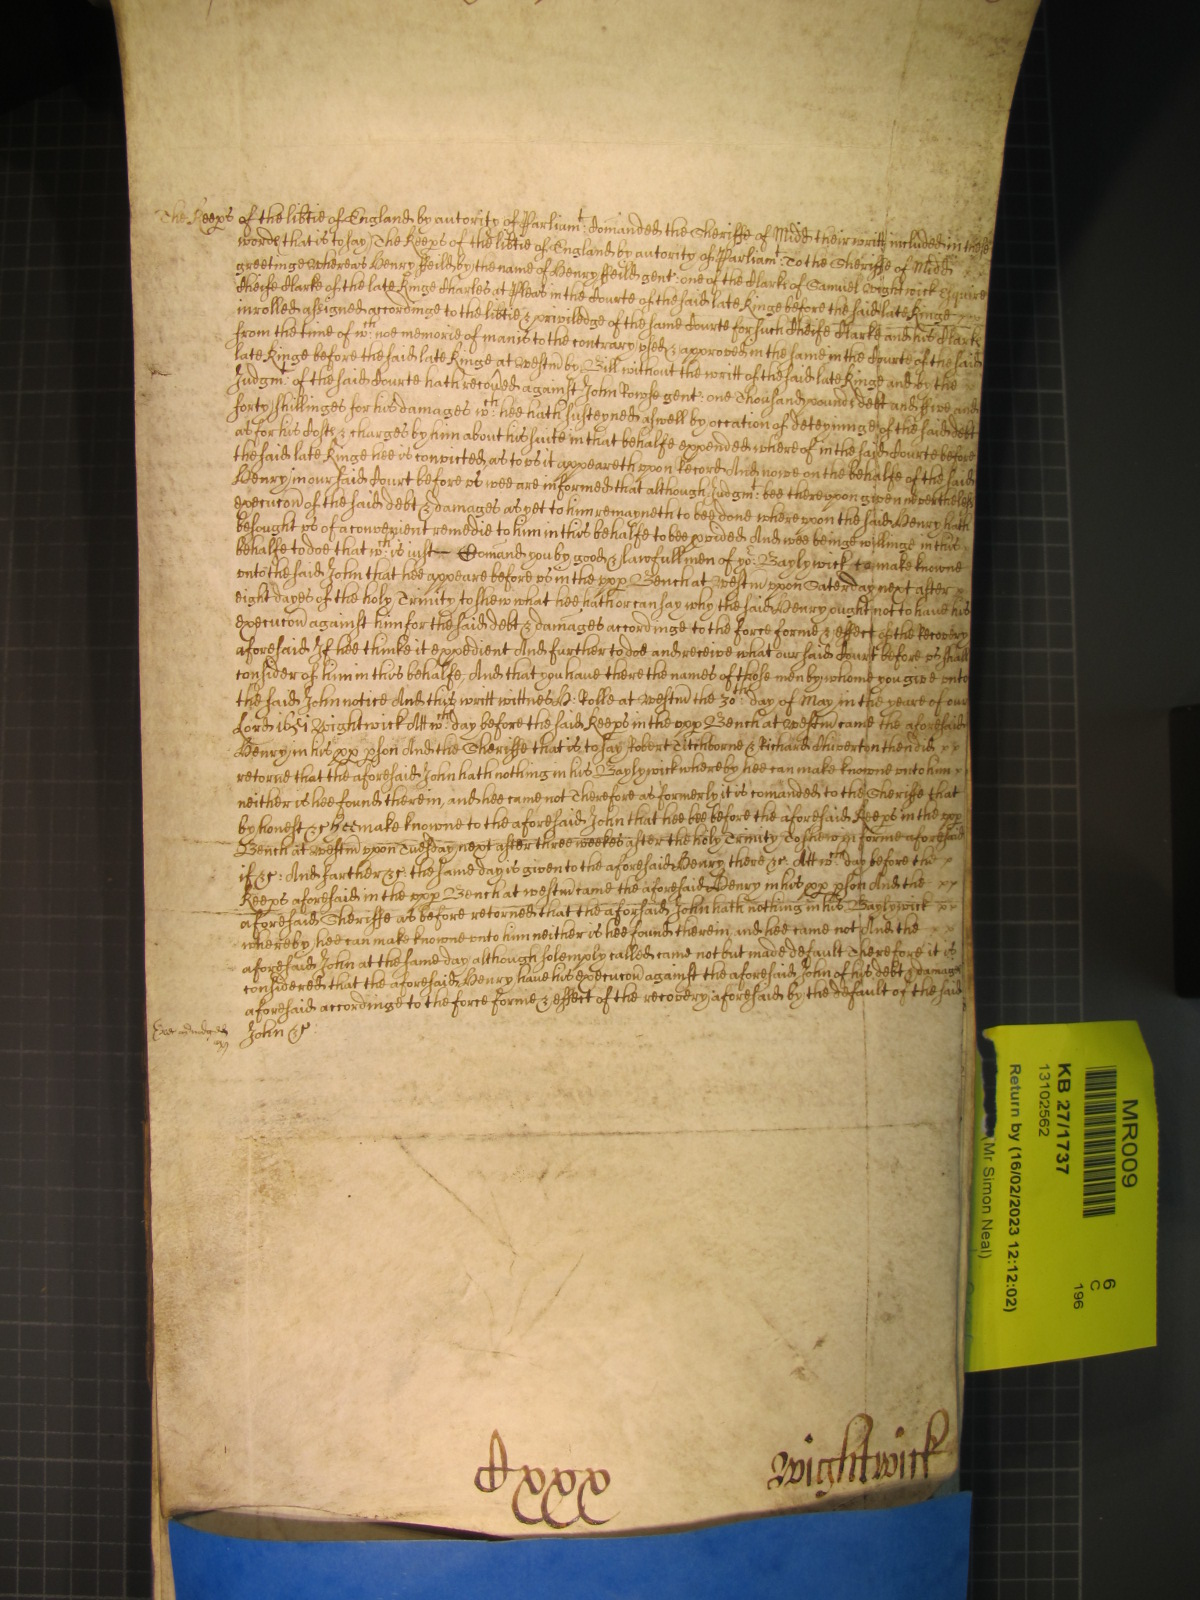 The Keeps of the lib̃tie of England by autority of Parliamt: comanded the Sheriffe of Midd their writt included in these
wordes that is to say The Keeps of the lib̃tie of England by autority of Parliamt: To the Sheriffe of Midd
greetinge Whereas Henry Feild by the name of Henry Feild gent: one of the Clarks of Samuel Wightwick Esquire
Cheife Clarke of the late Kinge Charles at Pleas in the Courte of the said late Kinge before the said late Kinge
inrolled assigned accordinge to the lib̃tie & priviledge of the same Courte for such Cheife Clarke and his Clarks
from the time of wch: noe memorie of man is to the contrary used & approved in the same in the Courte of the said
late Kinge before the said late Kinge at Westm̃ by Bill without the writt of the said late Kinge and by the
Judgmt: of the said Courte hath recoũed against John Rowse gent: one Thousand pounds debt and Five and
forty shillinges for his damages wch: hee hath susteyned aswell by occation of deteyninge of the said debt
as for his Costs & charges by him about his suite in that behalfe expended whereof in the said Courte before
the said late Kinge hee is convicted as to us it appeareth upon Record And nowe on the behalfe of the said
Henry in our said Court before us wee are informed that although Judgmt: bee thereupon given neverthelesse
execucon of the said debt & damages as yet to him remayneth to bee done whereupon the said Henry hath
besought us of a convenient remedie to him in this behalfe to bee pvided And wee beinge willinge in this
behalfe to doe that wch: is just Comand you by good & lawfull men of yor: Baylywick to make knowne
unto the said John that hee appeare before us in the upp Bench at Westm̃ upon Saterday next after
eight dayes of the holy Trinity to shew what hee hath or can say why the said Henry ought not to have his
execucon against him for the said debt & damages accordinge to the force forme & effect of the Recovery
aforesaid If hee thinke it expedient And further to doe and receive what our said Court before us shall
consider of him in this behalfe, And that you have there the names of those men by whome you give unto
the said John notice And this writt Witnes H: Rolle at Westm̃ the 30th: day of May in the yeare of our
Lord 1651 Wightwick Att wch: day before the said Keeps in the upp Bench at Westm̃ came the aforesaid
Henry in his pp pson And the Sheriffe that is to say Robert Titchborne & Richard Chiverton then did
retorne that the aforesaid John hath nothing in his Baylywick whereby hee can make knowne unto him
neither is hee found therein, and hee came not Therefore as formerly it is comanded to the Sheriffe that
by honest &c hee make knowne to the aforesaid John that hee bee before the aforesaid Keeps in the upp
Bench at Westm̃ upon Tuesday next after three weekes after the holy Trinity To shew in forme aforesaid
if &c: And farther &c: the same day is given to the aforesaid Henry there &c: Att wch: day before the
Keeps aforesaid in the upp Bench at Westm̃ came the aforesaid Henry in his pp pson And the
aforesaid Sheriffe as before retorned that the aforsaid John hath nothing in his Baylywick
whereby hee can make knowne unto him neither is hee found therein and hee came not And the
aforesaid John at the same day although solemply called came not but made default Therefore it is
considered that the aforesaid Henry have his execucon against the aforesaid John of his debt & damages
aforesaid accordinge to the force forme & effect of the recovery aforesaid by the default of the said
John &c
Cxxx
Wightwick
MR009
6
C
196
KB 27/1737
13102562
Return by (16/02/2023 12:12:02)
(Mr Simon Neal)